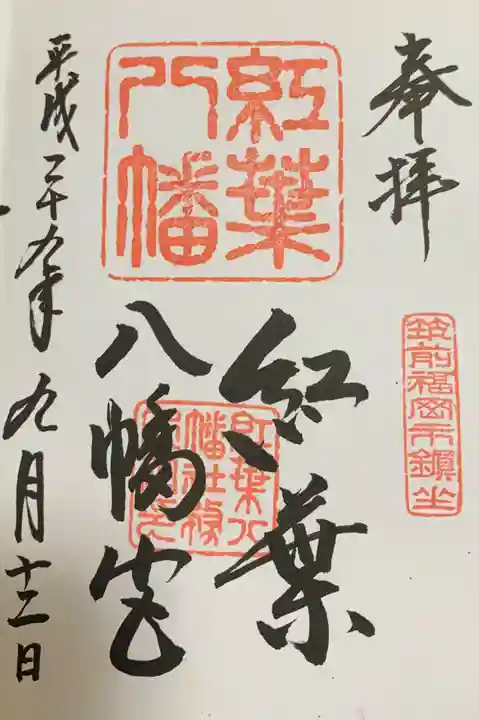 奉拝
筑前福岡市鎮坐
紅葉
八幡
紅葉
八幡宮
紅葉八
幡社務
平成二十九年九月十三日